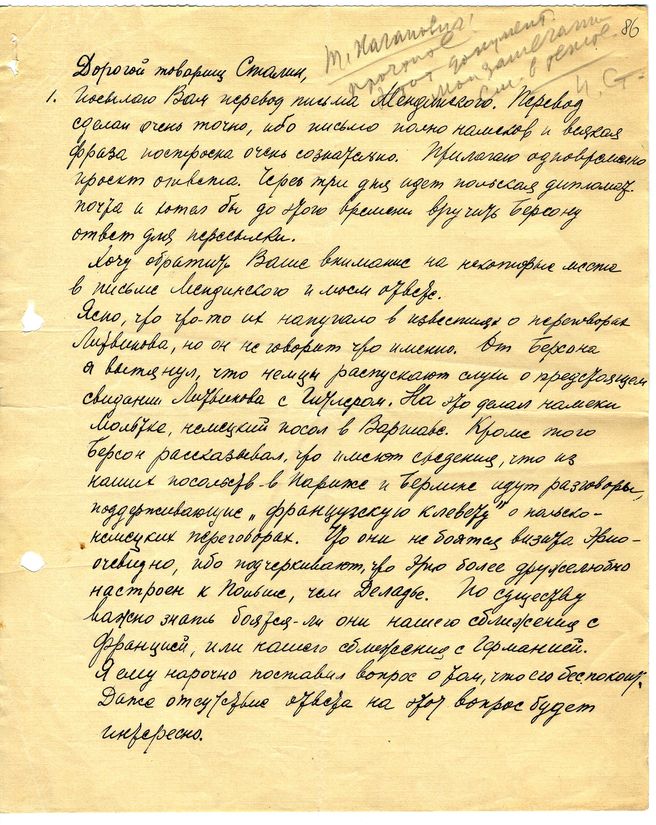 86
т. Каганович!
Прочтите
этот документ.
Мои замечания
см. в тексте.
И. Ст.
Дорогой товарищ Сталин,
1. Посылаю Вам перевод письма Мендзинского. Перевод
сделан очень точно, ибо письмо полно намеков и всякая
фраза построена очень сознательно. Прилагаю одновременно
проект ответа. Через три дня идет польская дипломат.
почта и хотел бы до этого времени вручить Берсону
ответ для пересылки.
Хочу обратить Ваше внимание на некоторые места
в письме Мендинского и моем ответе.
Ясно, что что-то их напугало в известиях о переговорах
Литвинова, но он не говорит что именно. От Берсона
я вытянул, что немцы распускают слухи о предстоящем
свидании Литвинова с Гитлером. На это делал намеки
Мольтке, немецкий посол в Варшаве. Кроме того
Берсон рассказывал, что имеют сведения, что из
наших посольств в Париже и Берлине идут разговоры,
поддерживающие „французскую клевету" о польско-
немецких переговорах. Что они не боятся визита Эрио-
очевидно, ибо подчеркивают, что Эрио более дружелюбно
настроен к Польше, чем Деладье. По существу
важно знать боятся-ли они нашего сближения с
Францией, или нашего сближения с Германией.
Я ему нарочно поставил вопрос о том, что его беспокоит.
Даже отсутствие ответа на этот вопрос будет
интересно.